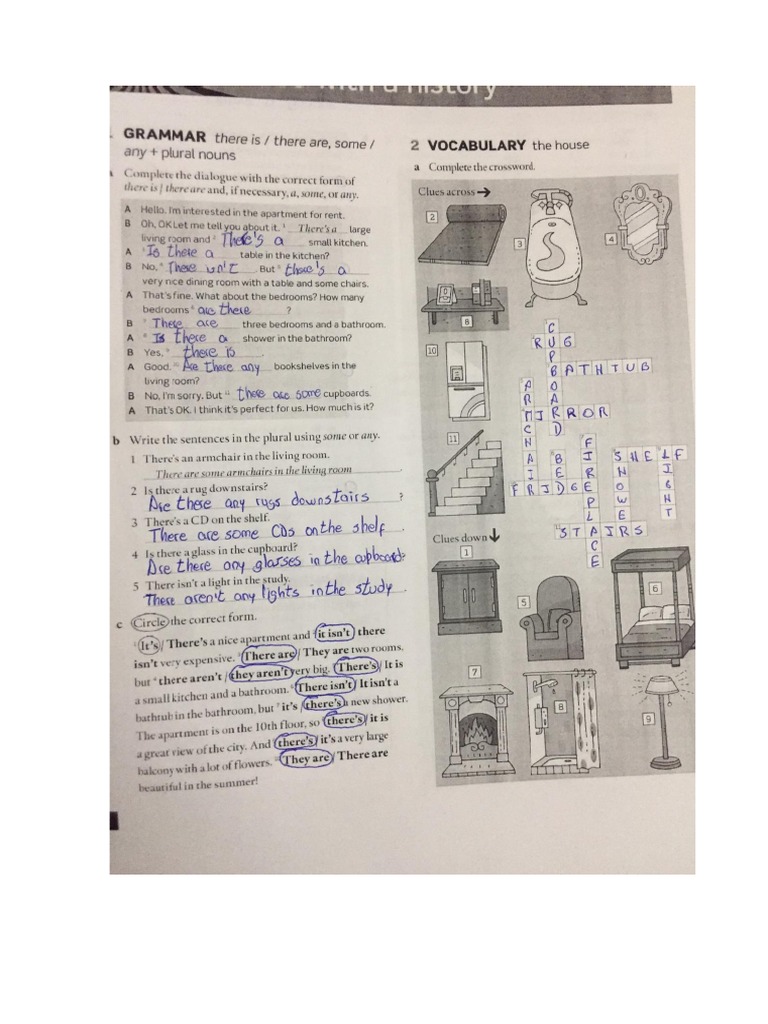 with a history
GRAMMAR there is / there are, some /
any + plural nouns
Complete the dialogue with the correct form of
there is / there are and, if necessary, a, some, or any.
A Hello. I'm interested in the apartment for rent.
B Oh, OK Let me tell you about it. 1 There's a large
living room and 2 There's a small kitchen.
A 3 Is there a table in the kitchen?
B No, 4 There isn't. But 5 there's a
very nice dining room with a table and some chairs.
A That's fine. What about the bedrooms? How many
bedrooms 6 are there ?
B 7 There are three bedrooms and a bathroom.
A 8 Is there a shower in the bathroom?
B Yes, 9 there is.
A Good. 10 Are there any bookshelves in the
living room?
B No, I'm sorry. But 11 there are some cupboards.
A That's OK. I think it's perfect for us. How much is it?
b Write the sentences in the plural using some or any.
1 There's an armchair in the living room.
There are some armchairs in the living room.
2 Is there a rug downstairs?
Are there any rugs downstairs ?
3 There's a CD on the shelf.
There are some CDs on the shelf.
4 Is there a glass in the cupboard?
Are there any glasses in the cupboard?
5 There isn't a light in the study.
There aren't any lights in the study.
c Circle the correct form.
1 It's / There's a nice apartment and 2 it isn't / there
isn't very expensive. 3 There are / They are two rooms,
but 4 there aren't / they aren't very big. 5 There's / It is
a small kitchen and a bathroom. 6 There isn't / It isn't a
bathtub in the bathroom, but 7 it's / there's a new shower.
The apartment is on the 10th floor, so 8 there's / it is
a great view of the city. And 9 there's / it's a very large
balcony with a lot of flowers. 10 They are / There are
beautiful in the summer!
2 VOCABULARY the house
a Complete the crossword.
Clues across →
2
3
4
8
10
11
CUPBOARD
RUG
BATHTUB
ARMCHAIR
MIRROR
FIREPLACE
BED
SHELF
SHOWER
LIGHT
FRIDGE
STAIRS
Clues down ↓
1
5
6
7
8
9